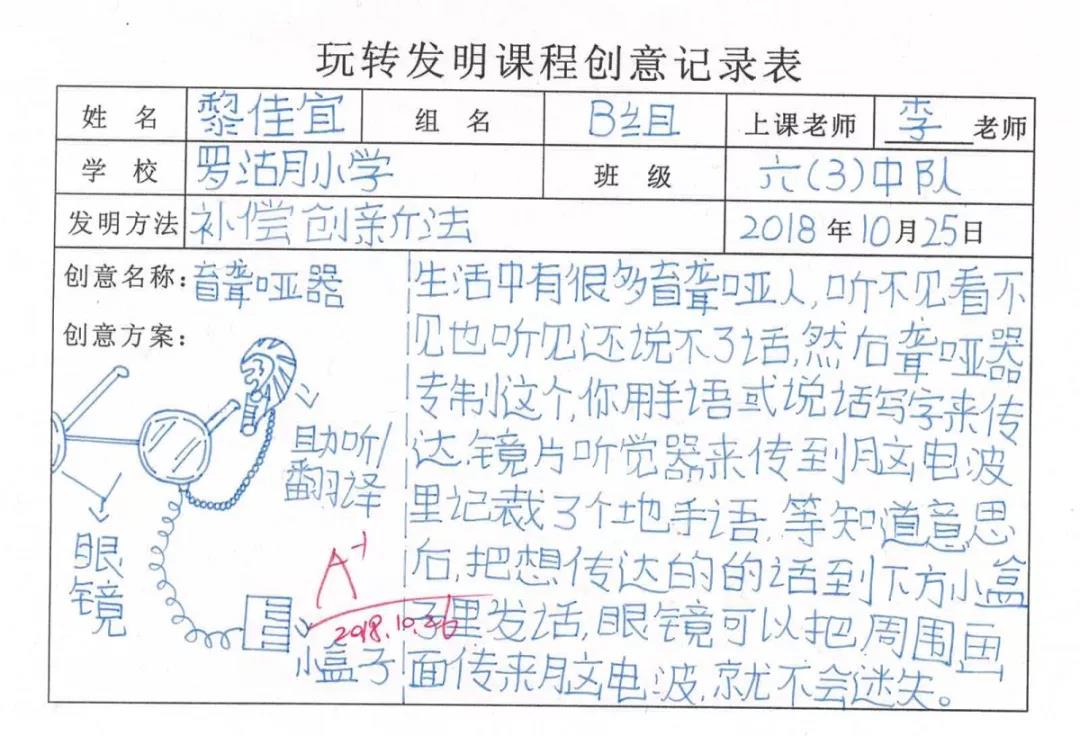 玩转发明课程创意记录表
姓 名 黎佳宜 组 名 B组 上课老师 李 老师
学 校 罗沽月小学 班 级 六(3)中队
发明方法 补偿创亲斤法 2018年10月25日
创意名称:盲聋哑器
创意方案:
助听/
翻译
眼
镜
小盒子
A+
2018.10.26
生活中有很多盲聋哑人,听不见看不
见也听见还说不了话,然后聋哑器
专制这个,你用手语或说话写字来传
达.镜片听觉器来传到脑电波
里记裁了个地手语.等知道意思
后,把想传达的的话到下方小盒
子里发话,眼镜可以把周围画
面传来脑电波,就不会迷失。